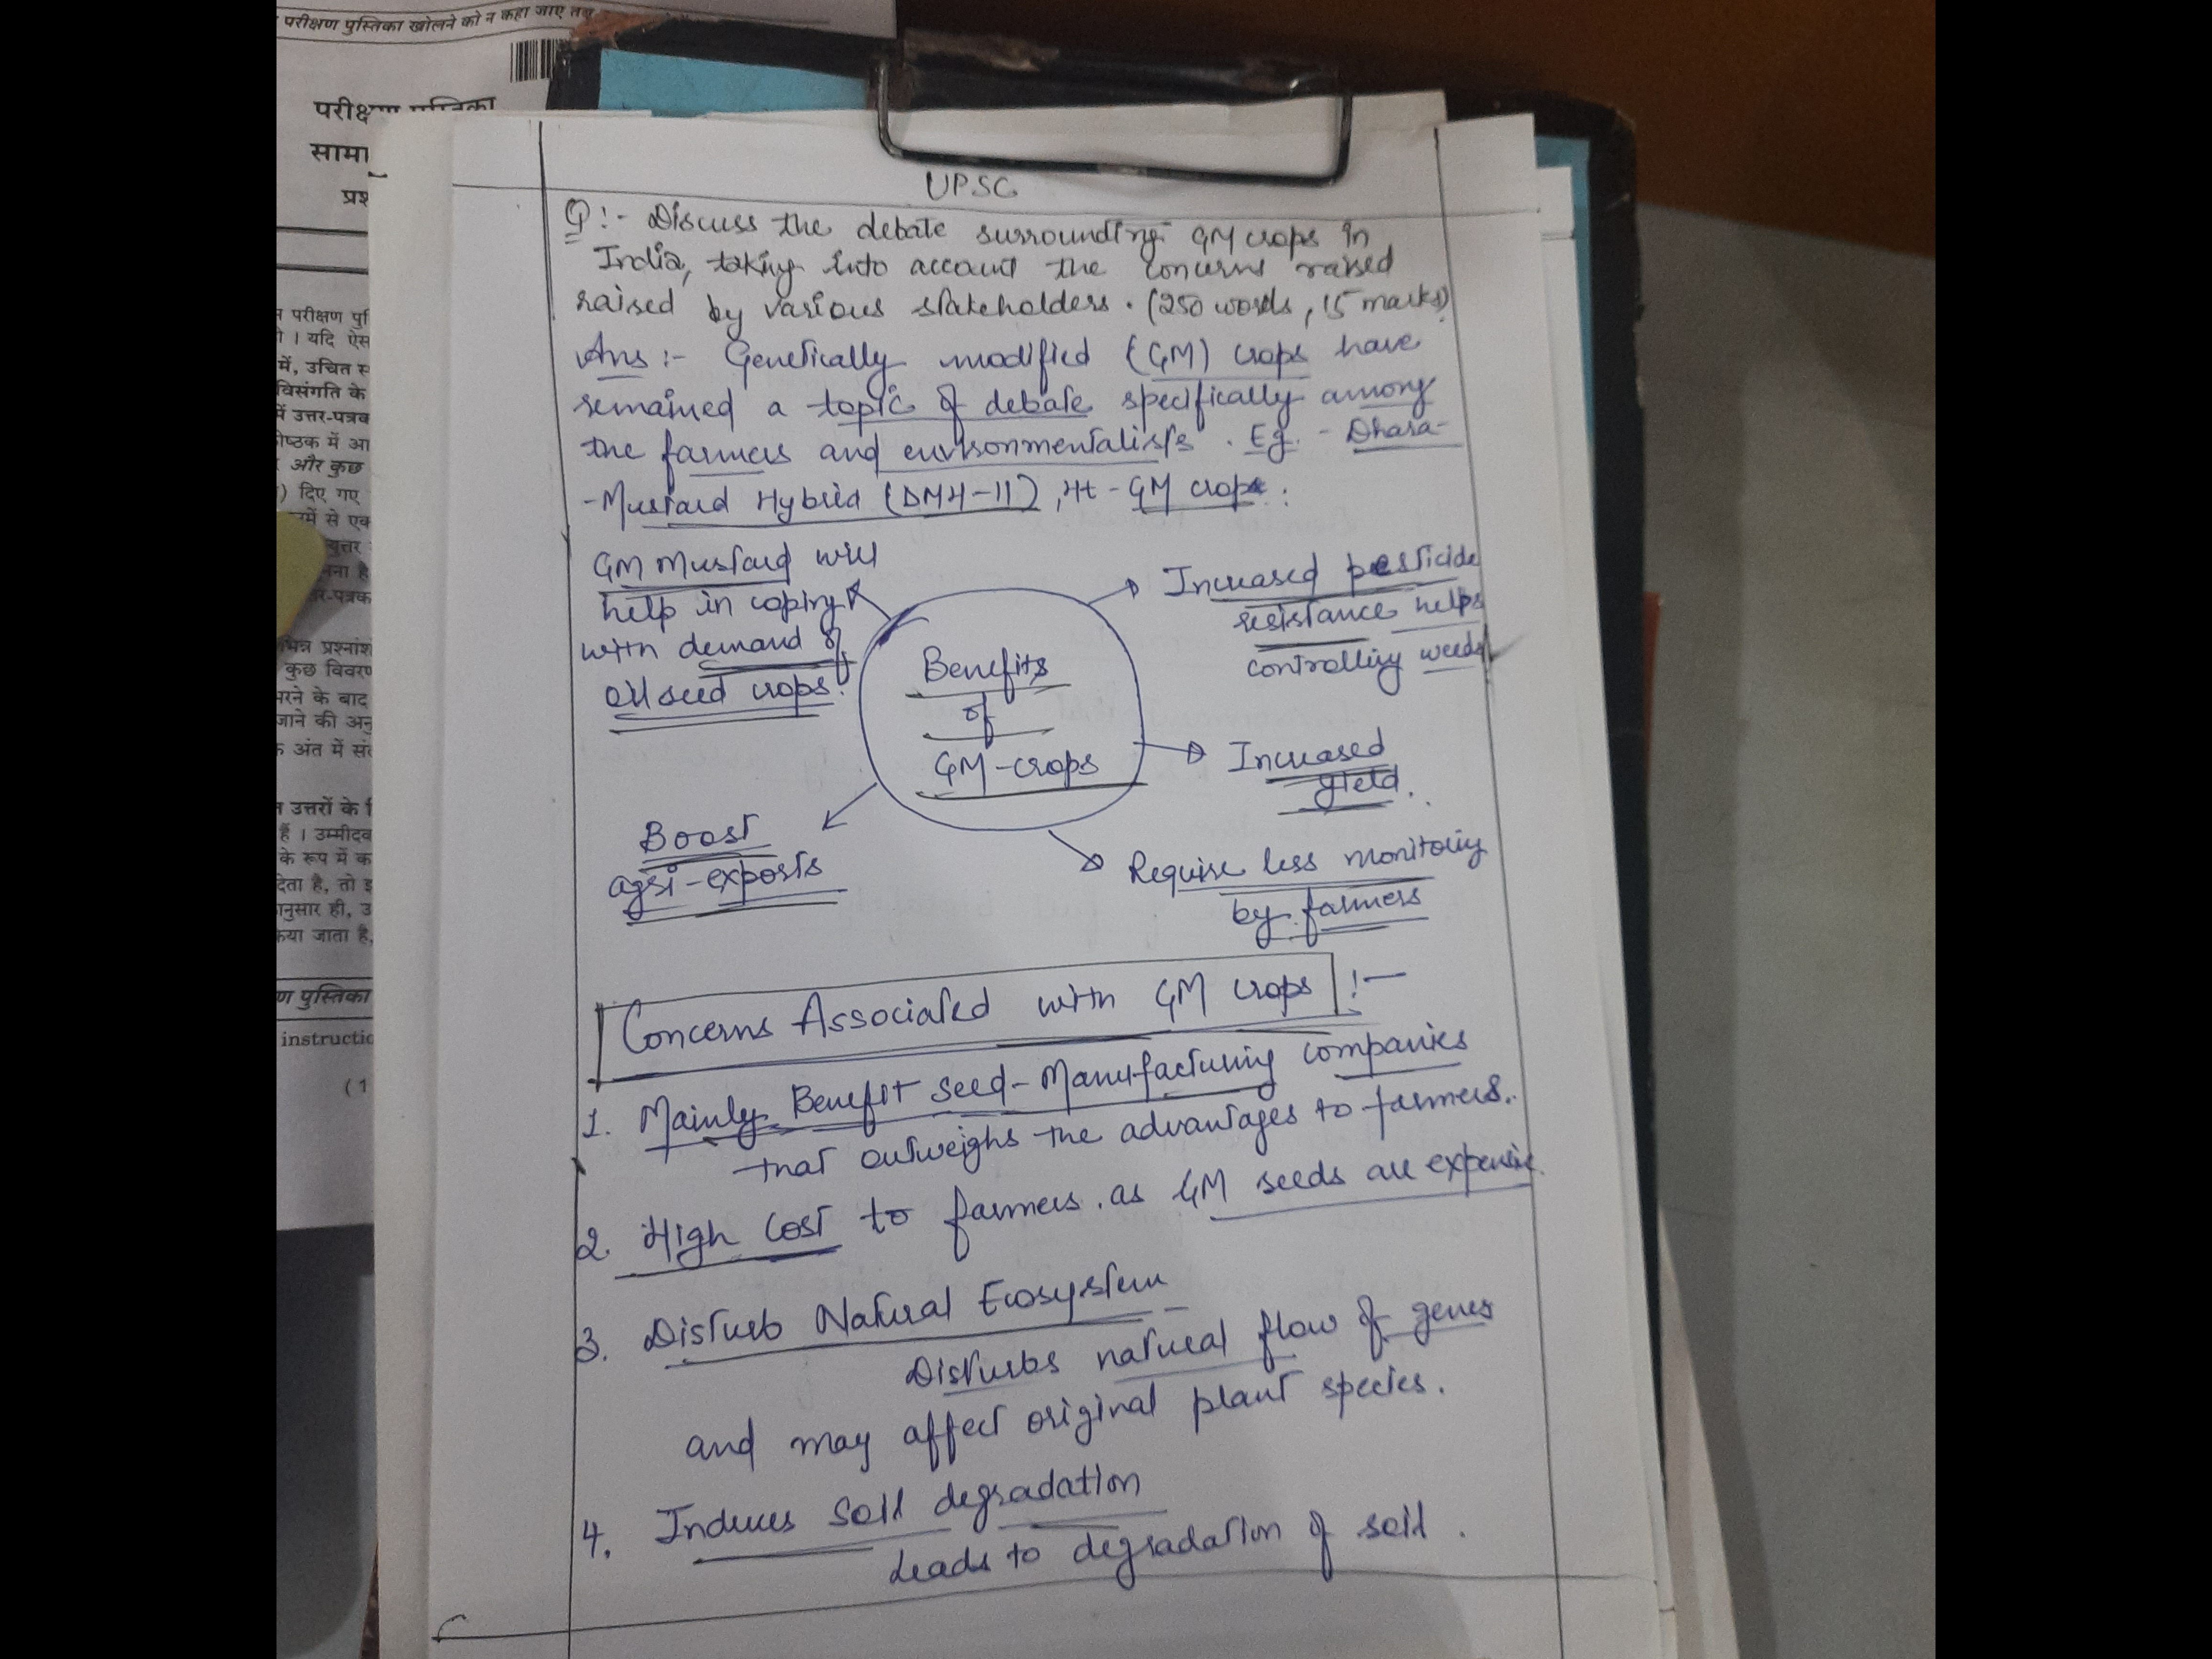 परीक्षण पुस्तिका खोलने को न कहा जाए तब
सामा
प्रश
परीक्षण पु
। यदि ऐस
में, उचित स
विसंगति के
में उत्तर-पत्रक
कोष्ठक में आ
और कुछ
) दिए गए
में से एक
कुछ विवरण
भरने के बाद
जाने की अनु
अंत में सं
उत्तरों के
हैं । उम्मीदव
के रूप में क
देता है, तो इ
नुसार ही, उ
किया जाता है,
पुस्तिका
instructio
( 1
UPSC
Q:- Discuss the debate surrounding GM crops in
India, taking into account the concerns raised
raised by various stakeholders. (250 words, 15 marks)
Ans :- Genetically modified (GM) crops have
remained a topic of debate specifically among
the farmers and environmentalists. Eg. - Dhara-
-Mustard Hybrid (DMH-11), Ht-GM crops:
GM Mustard will
help in coping
with demand of
oilseed crops.
Increased pesticide
resistance helps
controlling weeds
Benefits
of
GM-crops
Increased
yield.
Boost
agri-exports
Require less monitoring
by farmers
Concerns Associated with GM crops :-
1. Mainly Benefit seed-Manufacturing companies
that outweighs the advantages to farmers.
2. High Cost to farmers. as GM seeds are expensive.
3. Disturb Natural Ecosystem
Disturbs natural flow of genes
and may affect original plant species.
4. Induces Soil degradation
Leads to degradation of soil.